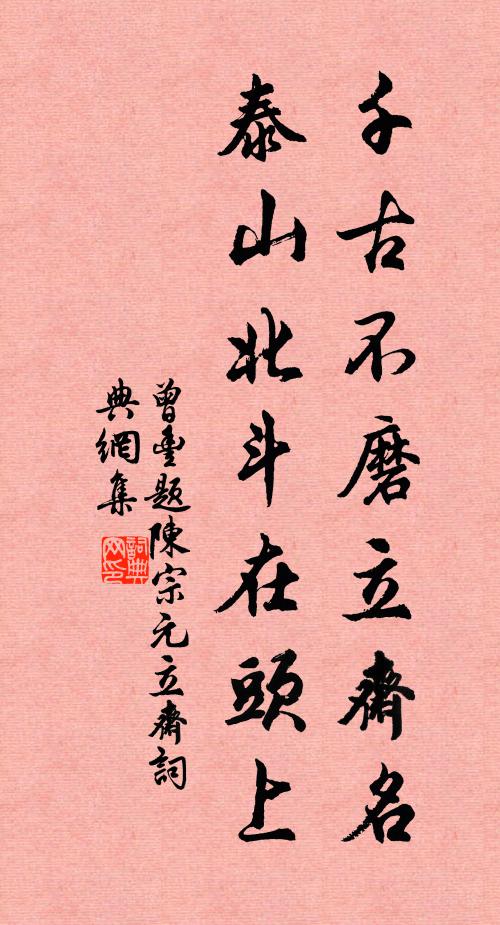 千古不磨立齋名
泰山北斗在頭上
曾豐題陳宗元立齋詞
典網集
詞典
网印